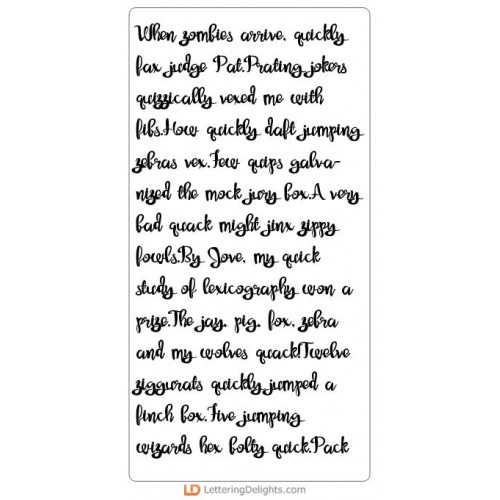 When zombies arrive, quickly
fax judge Pat.Prating jokers
quizzically vexed me with
fibs.How quickly daft jumping
zebras vex.Few quips galva-
nized the mock jury box.A very
bad quack might jinx zippy
fowls.By Jove, my quick
study of lexicography won a
prize.The jay, pig, fox, zebra
and my wolves quack!Twelve
ziggurats quickly jumped a
finch box.Five jumping
wizards hex bolty quick.Pack
LD LetteringDelights.com